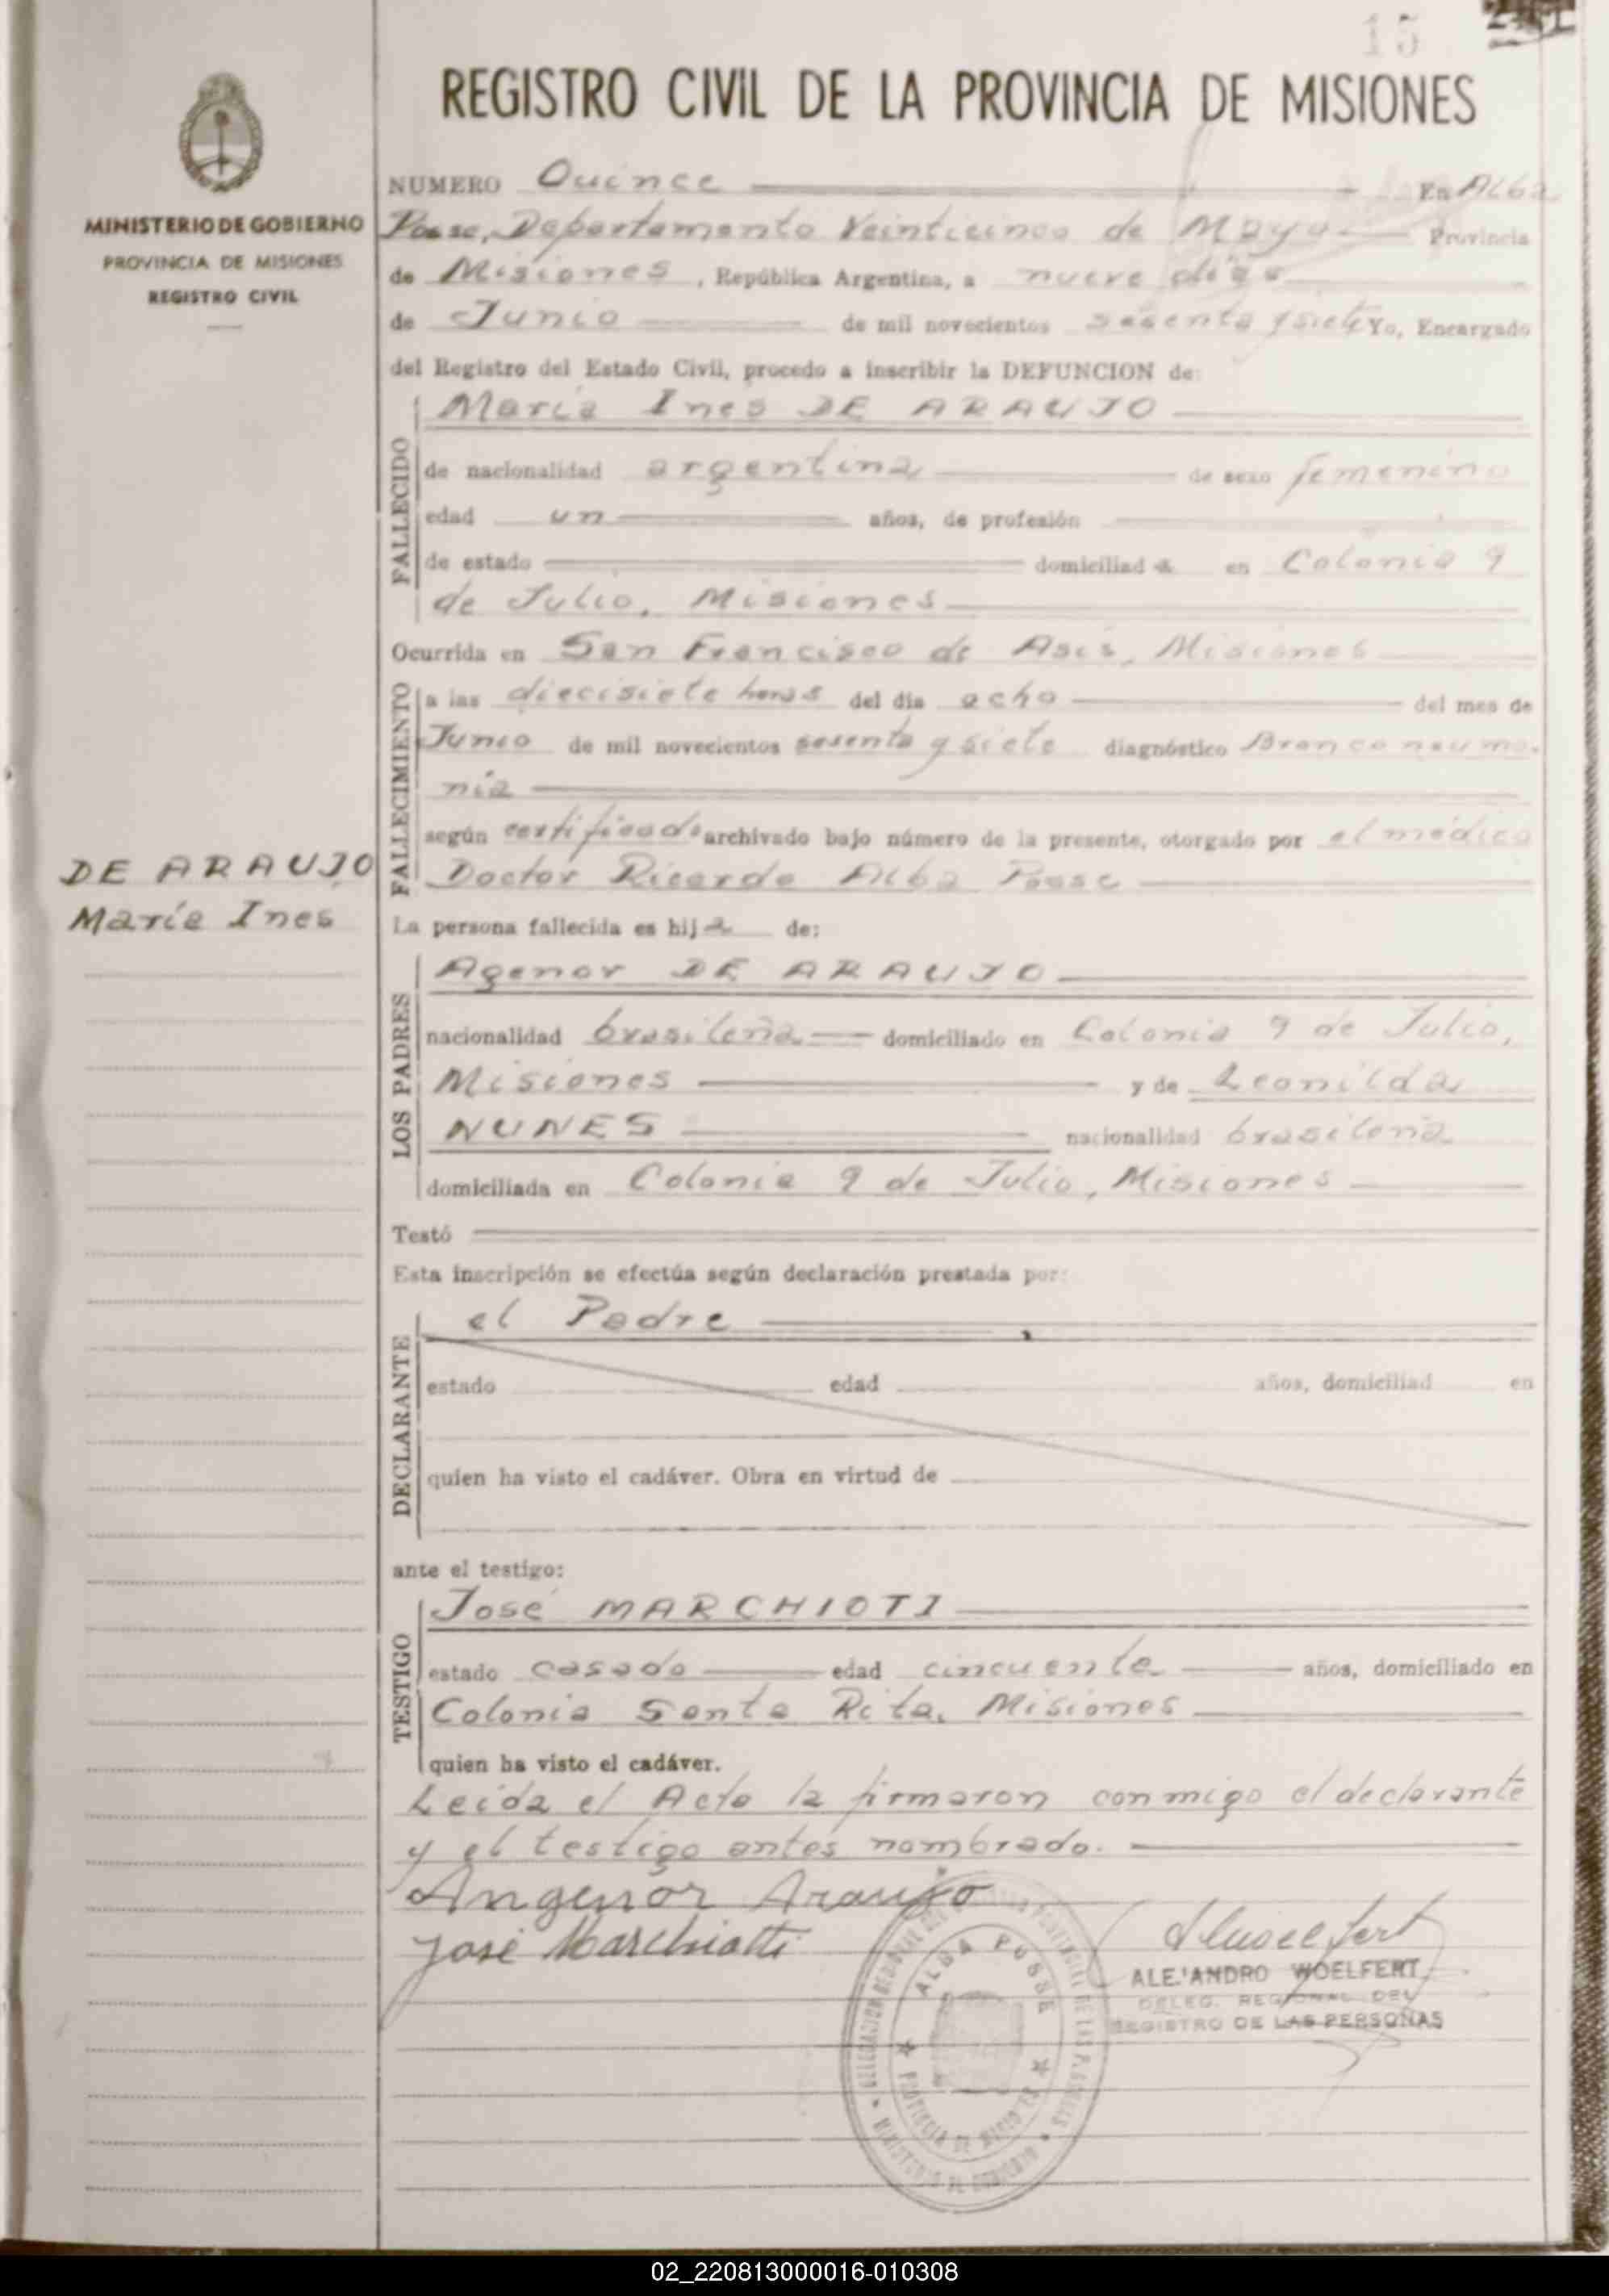 15
REGISTRO CIVIL DE LA PROVINCIA DE MISIONES
MINISTERIO DE GOBIERNO
PROVINCIA DE MISIONES
REGISTRO CIVIL
NUMERO Quince En Alba
Posse, Departamento Veinticinco de Mayo Provincia
de Misiones, República Argentina, a nueve días
de Junio de mil novecientos sesenta y siete Yo, Encargado
del Registro del Estado Civil, procedo a inscribir la DEFUNCION de:
FALLECIDO
María Ines DE ARAUJO
de nacionalidad argentina de sexo femenino
edad un años, de profesión
de estado domiciliada en Colonia 9
de Julio, Misiones
Ocurrida en San Francisco de Asis, Misiones
FALLECIMIENTO
a las diecisiete horas del día ocho del mes de
Junio de mil novecientos sesenta y siete diagnóstico Bronconeumo-
nía
según certificado archivado bajo número de la presente, otorgado por el médico
Doctor Ricardo Alba Posse
DE ARAUJO
María Ines
La persona fallecida es hija de:
LOS PADRES
Agenor DE ARAUJO
nacionalidad brasileña domiciliado en Colonia 9 de Julio,
Misiones y de Leonilda
NUNES nacionalidad brasileña
domiciliada en Colonia 9 de Julio, Misiones
Testó
Esta inscripción se efectúa según declaración prestada por:
DECLARANTE
el Padre
estado edad años, domiciliad en
quien ha visto el cadáver. Obra en virtud de
ante el testigo:
TESTIGO
José MARCHIOTI
estado casado edad cincuenta años, domiciliado en
Colonia Santa Rita, Misiones
quien ha visto el cadáver.
Leída el Acta la firmaron conmigo el declarante
y el testigo antes nombrado.
Angenor Araujo
José Marchiotti
ALBA POSSE
PROVINCIA DE MISIONES
MINISTERIO DE GOBIERNO
ALEJANDRO WOELFERT
DELEG. REGIONAL DEL
REGISTRO DE LAS PERSONAS
02_220813000016-010308